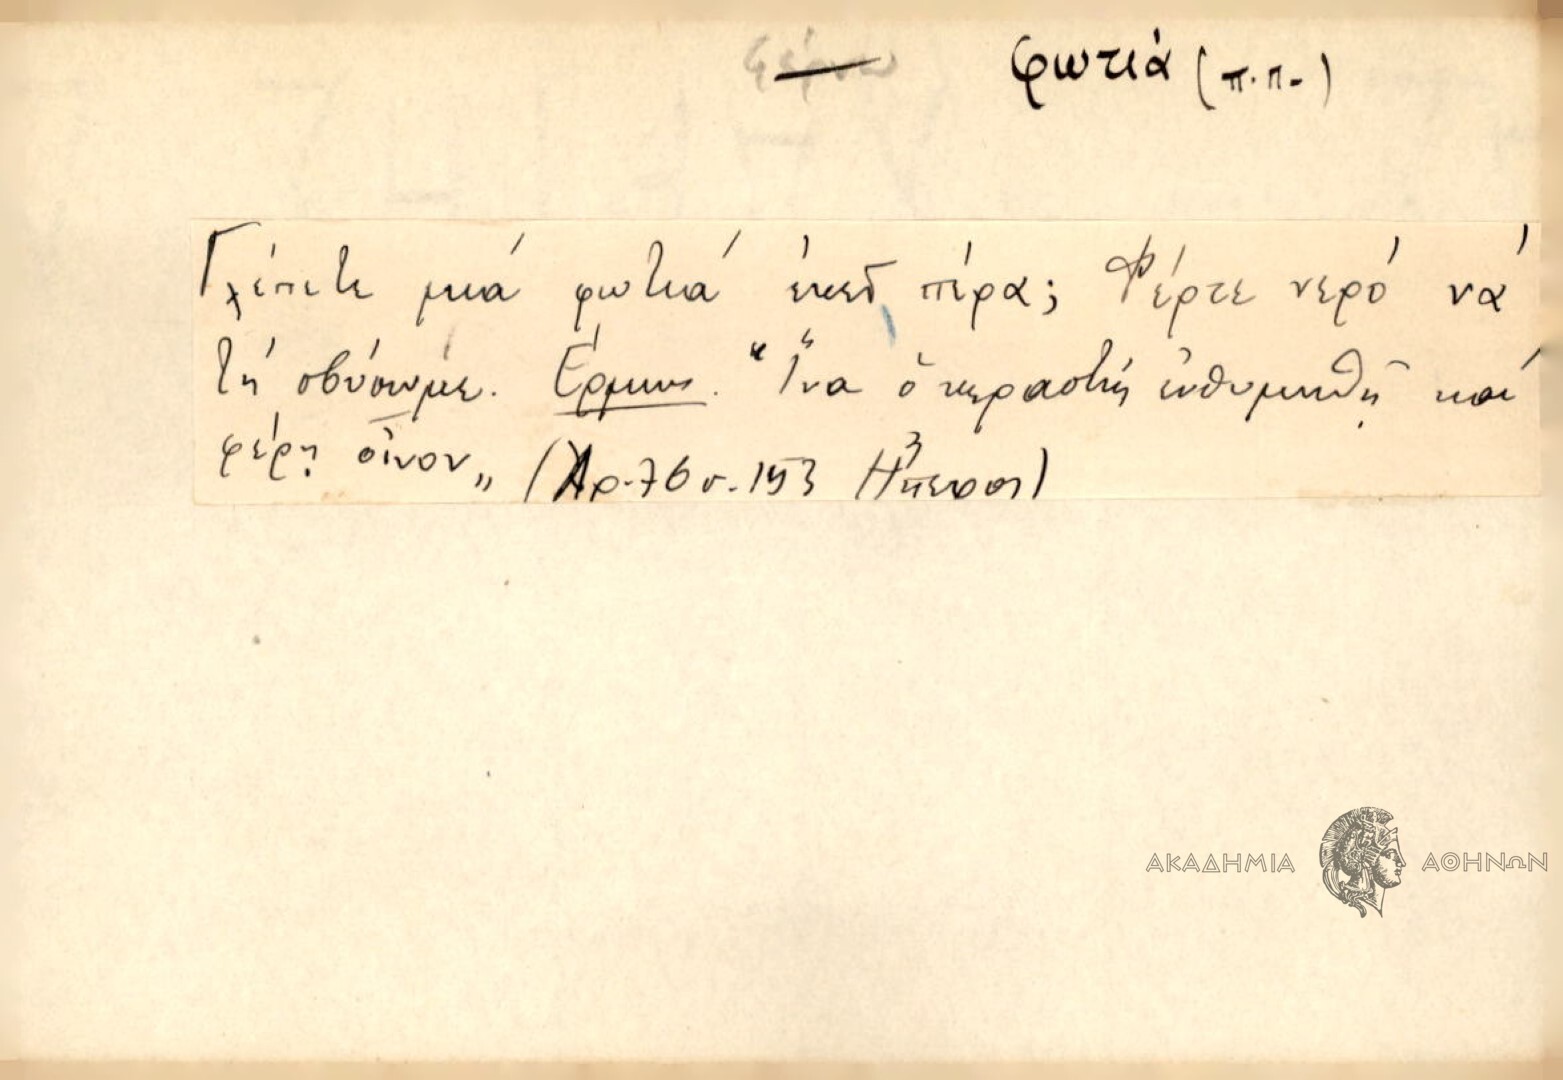 φωτιά (π.π.)
Γλέπετε μιά φωτιά ἐκεῖ πέρα; Φέρτε νερό νά
τή σβύσωμε. Ἑρμην. "Ἵνα ὁ κεραστής ἐνθυμηθῇ καί
φέρῃ οἶνον„ (Ἀρ. 76 σ. 153 Ἤπειρος)
ΑΚΑΔΗΜΙΑ ΑΘΗΝΩΝ